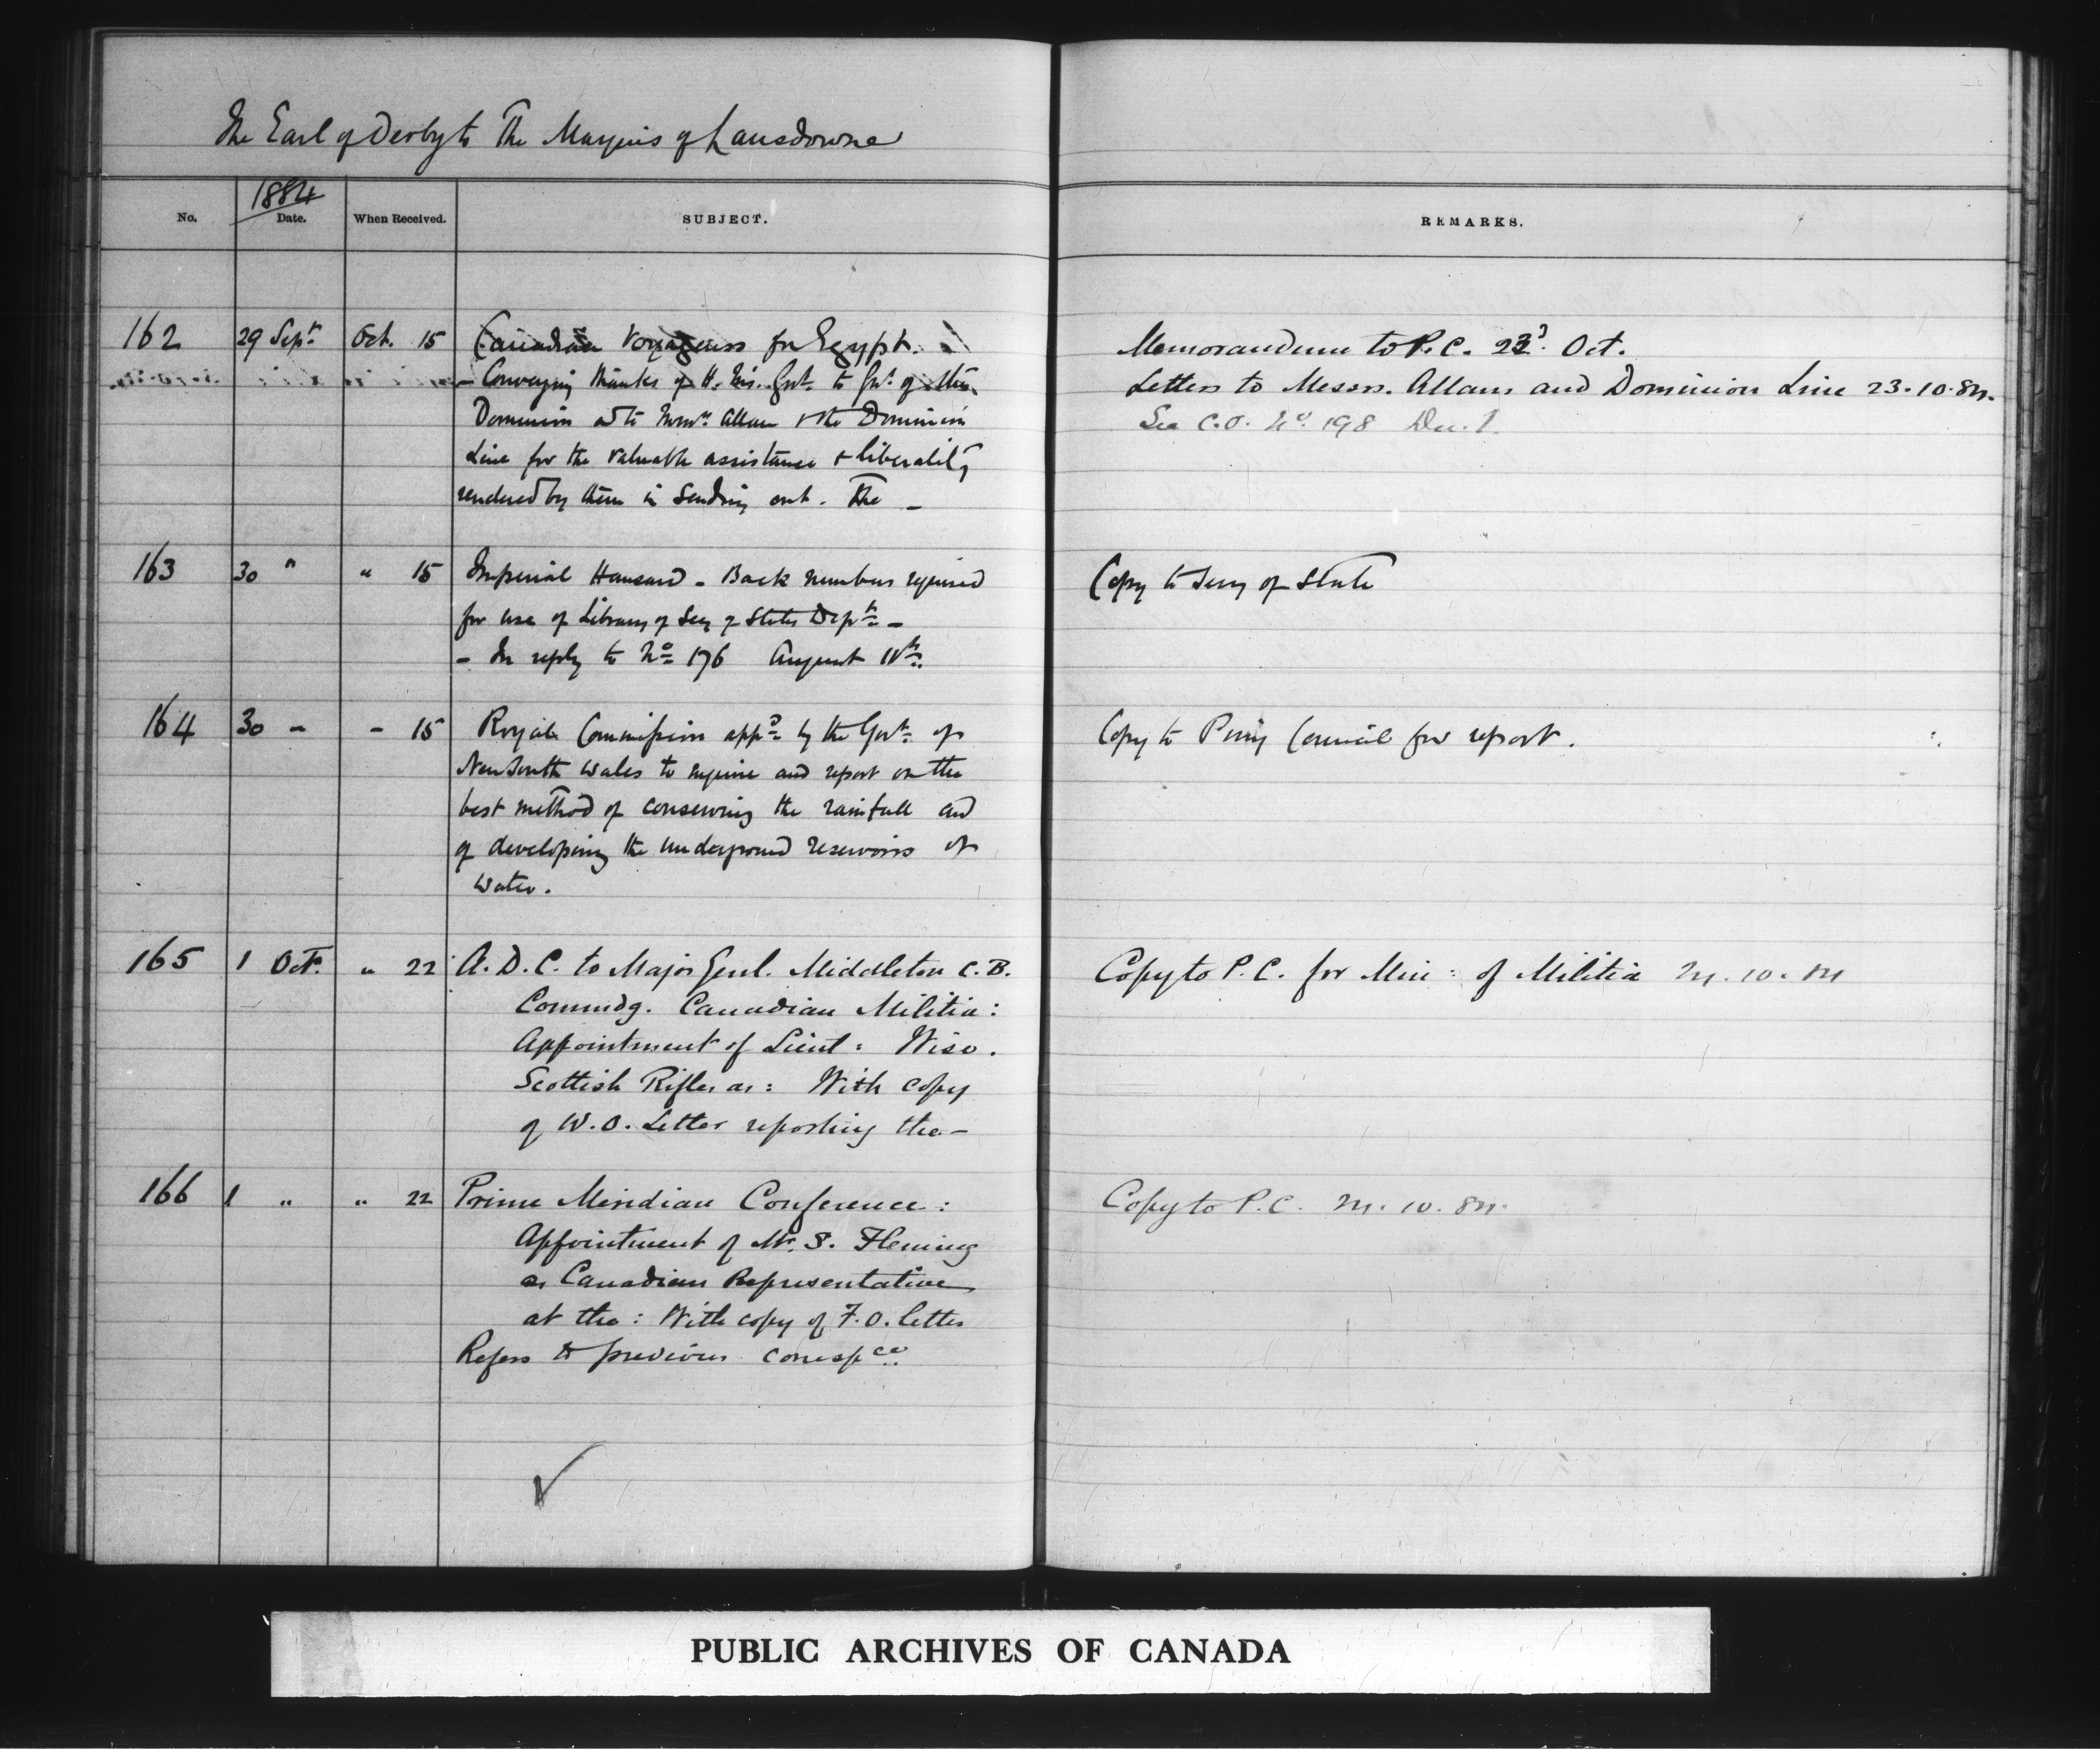 The Earl of Derby to The Marquis of Lansdowne
1884
No. Date. When Received. SUBJECT. REMARKS.
162 29 Sept. Oct. 15 Canadian Voyageurs for Egypt.
- Conveying thanks of H. Ms. Govt. to Govt. of the
Dominion & to Messrs. Allan & the Dominion
Line for the valuable assistance & liberality
rendered by them in sending out. The -
Memorandum to P.C. 23d. Oct.
Letters to Messrs. Allans and Dominion Line 23.10.84.
See C.O. No. 198 Dec. 1.
163 30 " " 15 Imperial Hansard - Back numbers required
for use of Library of Secy of States Dept. -
- In reply to No. 176 August 11th.
Copy to Secy of State
164 30 - - 15 Royal Commission appd. by the Govt. of
New South Wales to enquire and report on the
best method of conserving the rainfall and
of developing the underground reservoirs of
water.
Copy to Privy Council for report.
165 1 Oct. " 22 A.D.C. to Major Genl. Middleton C.B.
Commdg. Canadian Militia:
Appointment of Lieut: Wise.
Scottish Rifles as: With copy
of W.O. Letter reporting the -
Copy to P.C. for Min: of Militia 24.10.84
166 1 " " 22 Prime Meridian Conference:
Appointment of Mr. S. Fleming
as Canadian Representative
at the: With copy of F.O. letter
Refers to previous corresp ce.
Copy to P.C. 24.10.84.
PUBLIC ARCHIVES OF CANADA